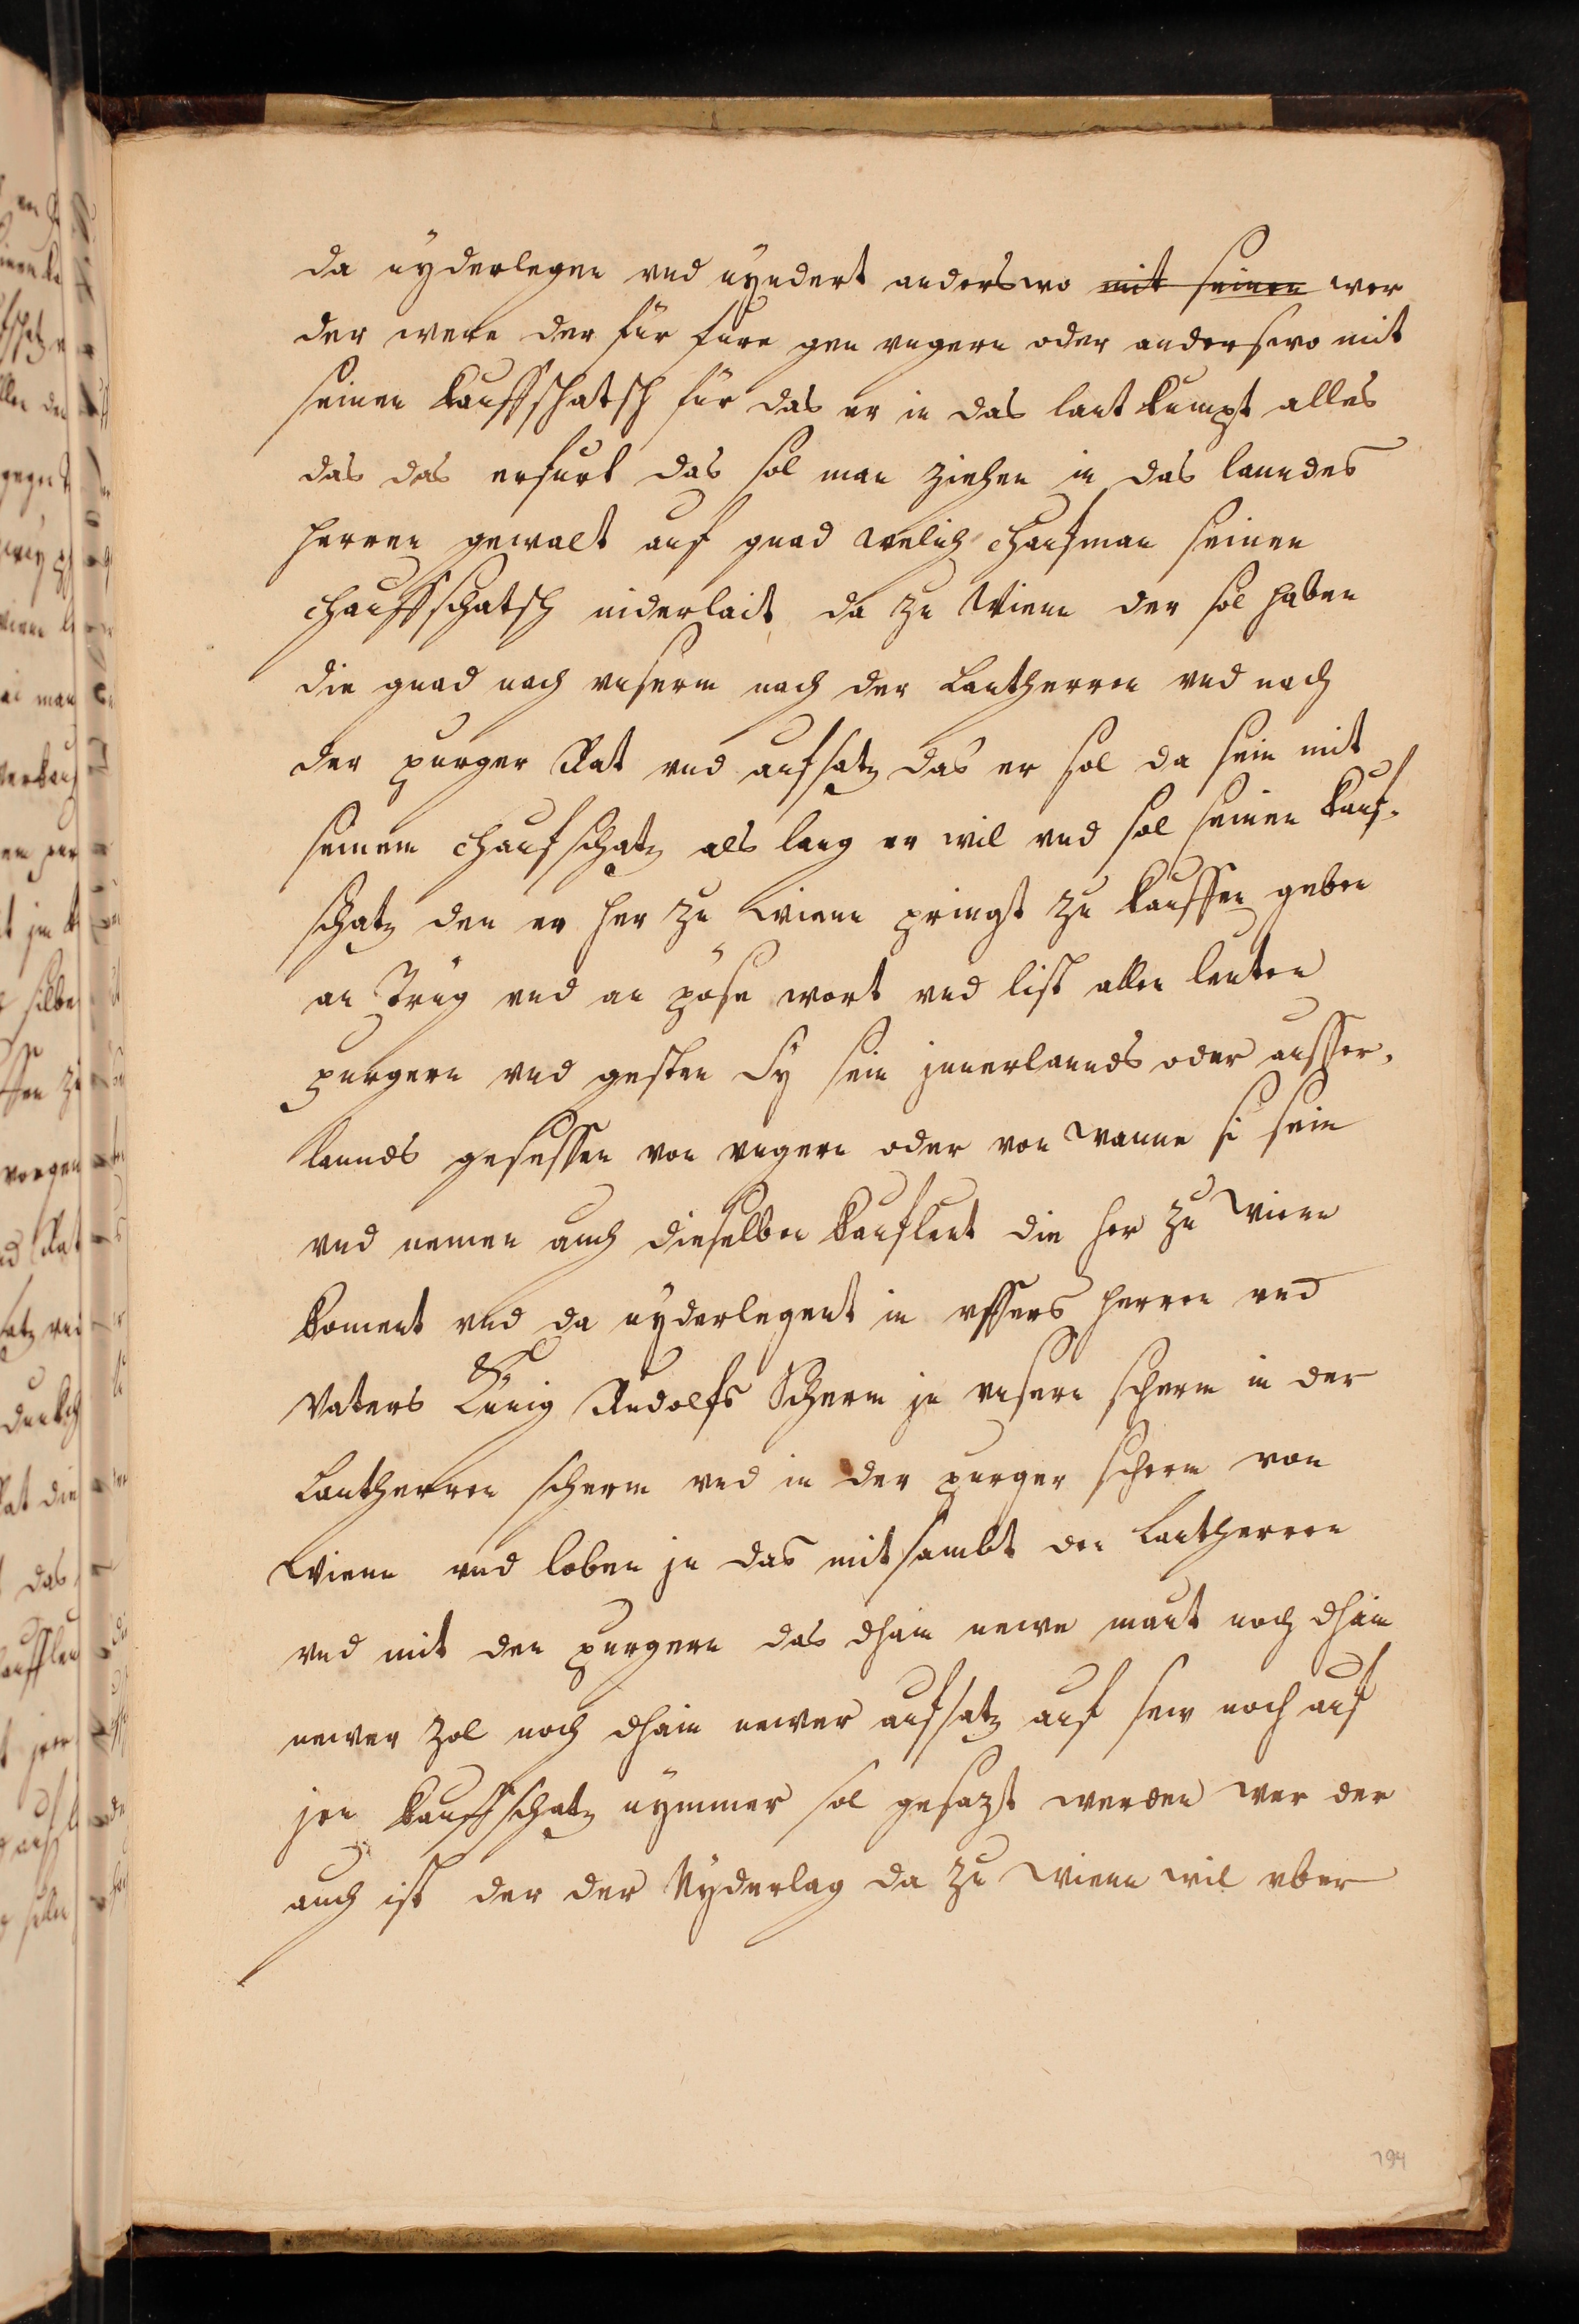 da nyderlegen vnd nyndert anderswo mit seinen wer
der were der für fure gen vngern oder anderswo mit
seinen kauffschatsch für das er in das lant kumpt alles
das das erfurt das sol man ziehen in das lanndes
herren gewalt auf gnad welich chaufman seinen
chauffschatsch niderlait da ze Wienn der sol haben
die gnad nach vnserm nach der Lantherren vnd nach
der purger Rat vnd aufsatz das er sol da sein mit
seinem chaufschatz als lang er wil vnd sol seinen kauf-
schatz den er her ze Wienn pringt ze kauffen geben
an Trüg vnd an pöse wort vnd list allen leuten
purgern vnd gesten Sy sein jnnerlannds oder ausser-
lannds gesessen von vngern oder von wanne si sein
vnd nemen auch dieselben kaufleut die her ze Wienn
koment vnd da nyderlegent in vnsers herren vnd
Vaters Künig Rudolfs Scherm jn vnsern scherm in der
Lantherren scherm vnd in der purger scherm von
Wienn vnd loben jn das mitsambt den Lantherren
vnd mit den purgern das dhain newe maut noch dhain
newer zol noch dhain newer aufsatz auf sew noch auf
jren kauffschatz nymmer sol gesazt werden wer der
auch ist der der Nyderlag da ze Wienn wil vber
194